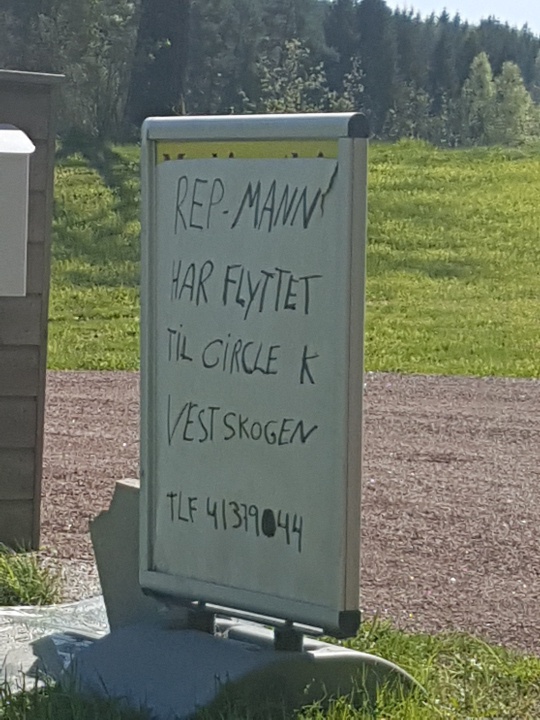 REP-MANN
HAR FLYTTET
TIL CIRCLE K
VESTSKOGEN
TLF 41379044